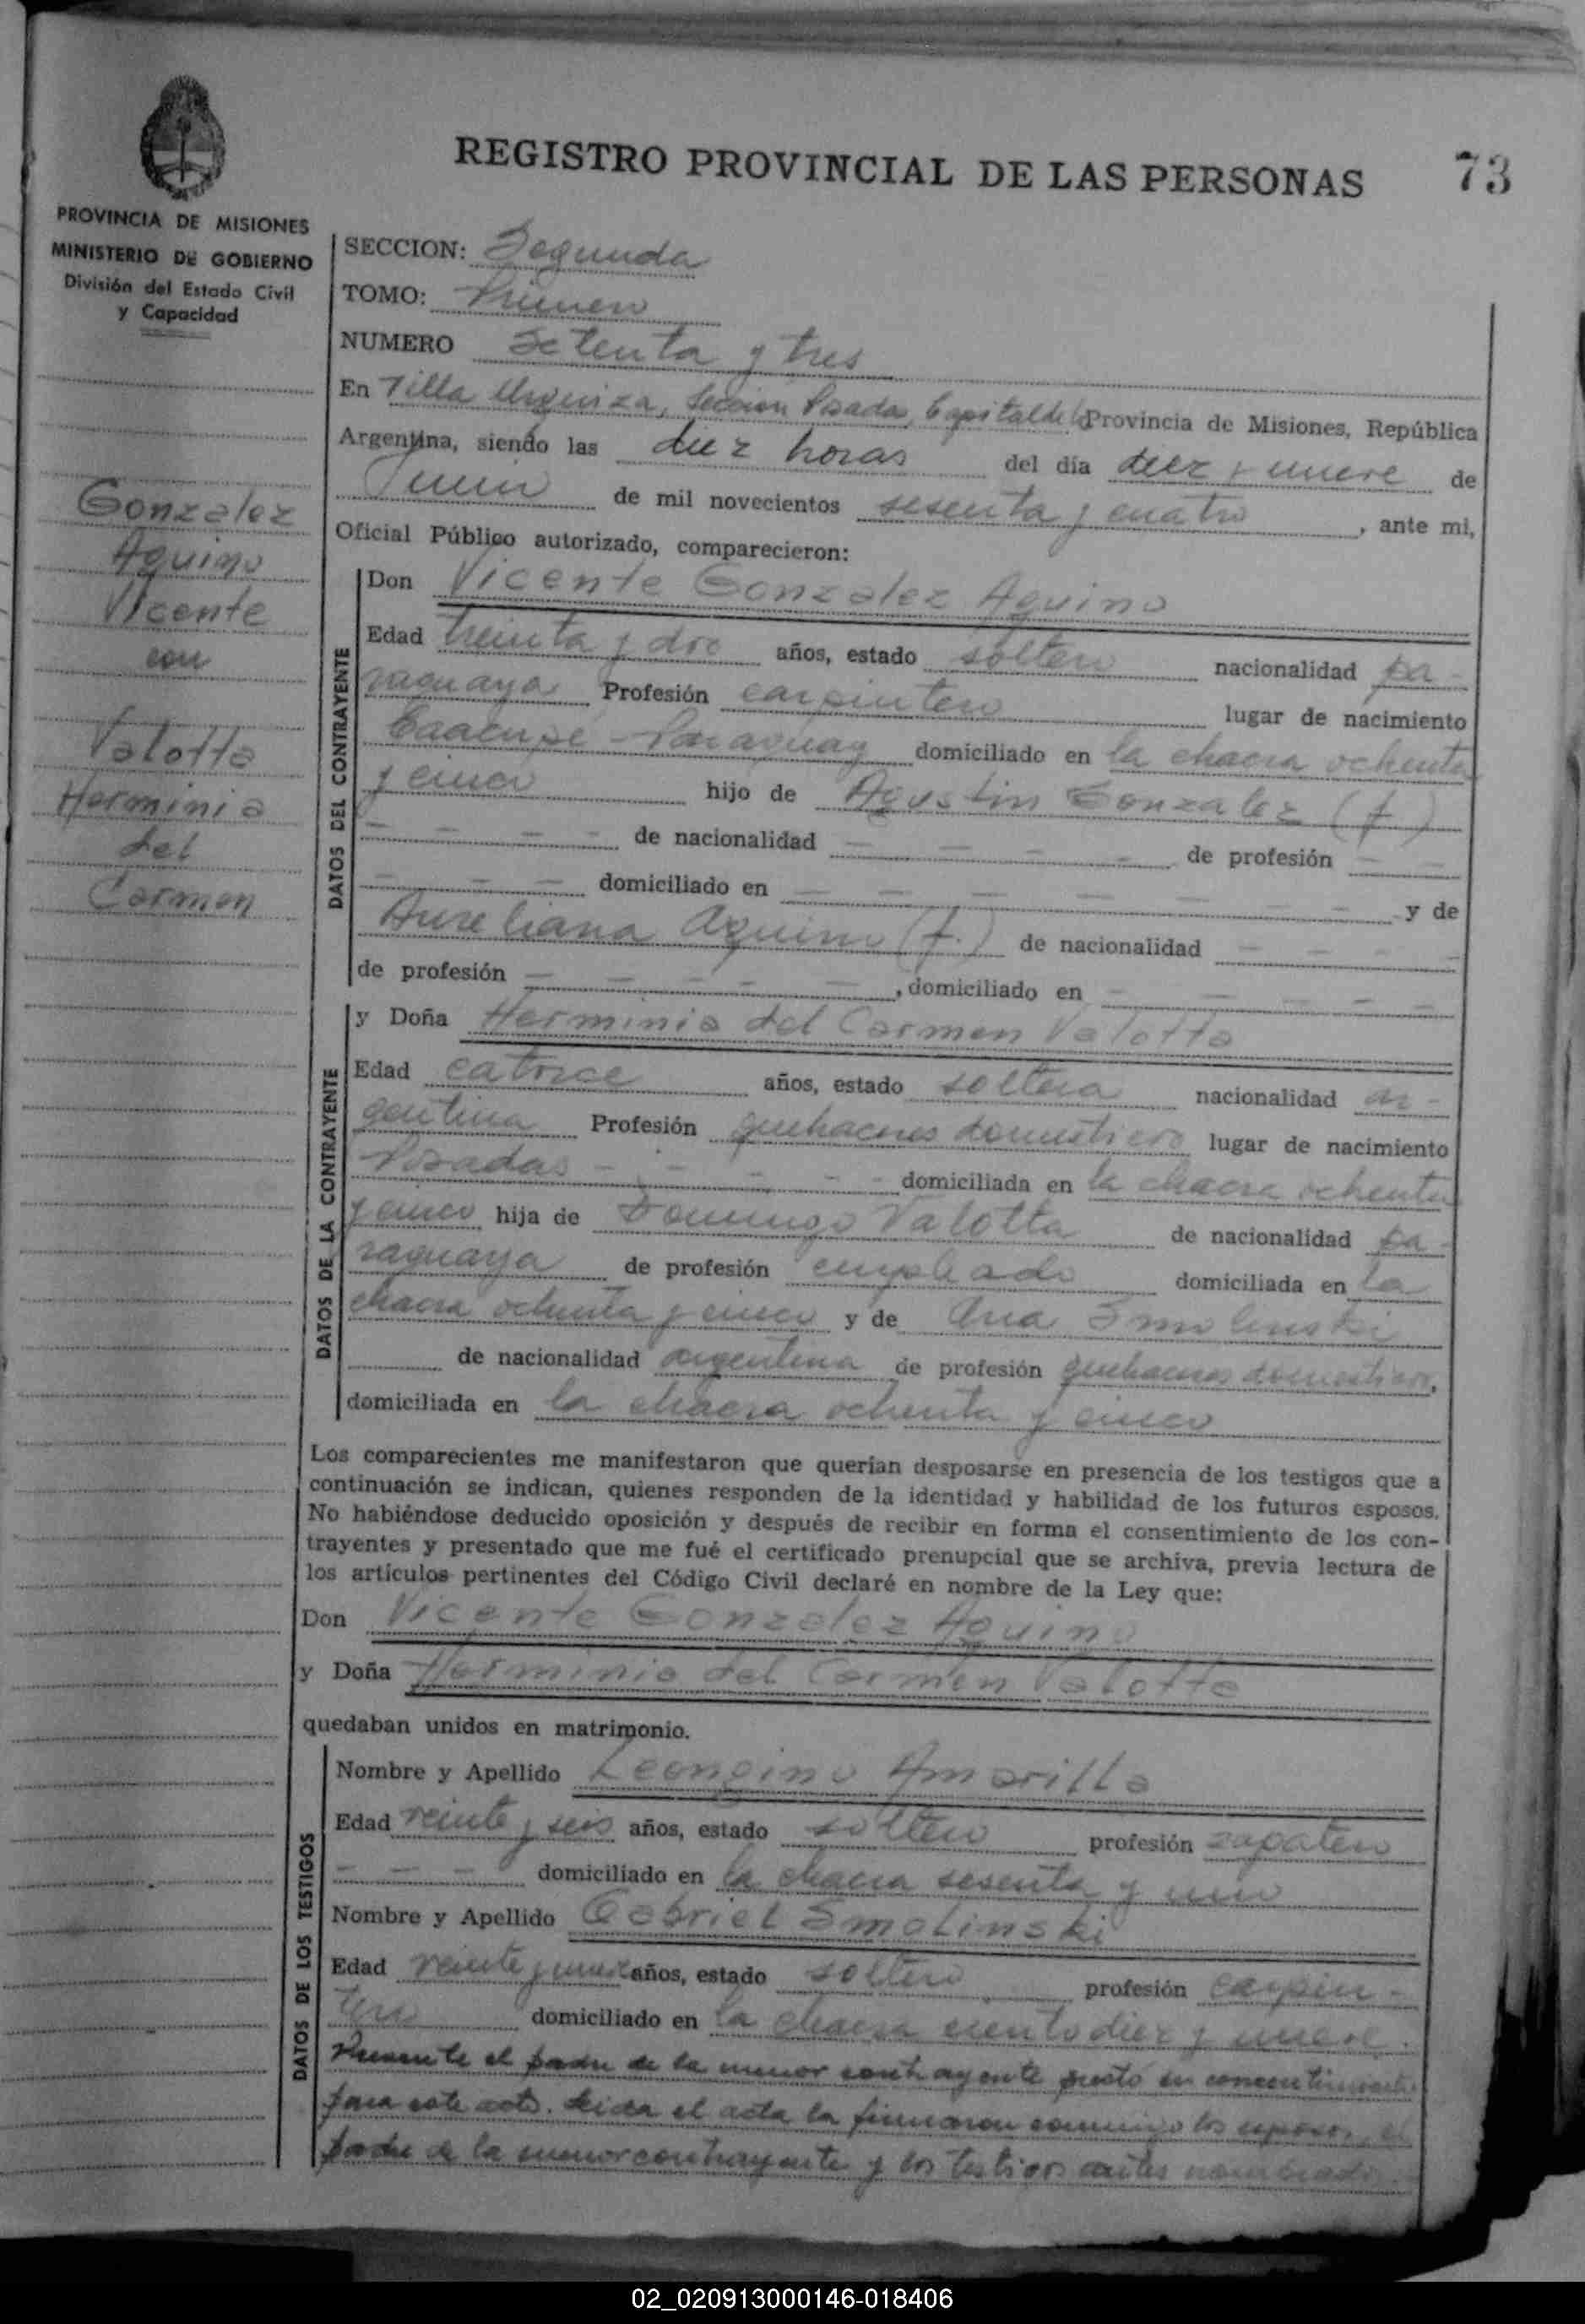 REGISTRO PROVINCIAL DE LAS PERSONAS
73
PROVINCIA DE MISIONES
MINISTERIO DE GOBIERNO
División del Estado Civil
y Capacidad
Gonzalez
Aquino
Vicente
con
Valotta
Herminia
del
Carmen
SECCION: Segunda
TOMO: Primero
NUMERO Setenta y tres
En Villa Urquiza, Sección Posadas, Capital de la Provincia de Misiones, República
Argentina, siendo las diez horas del día diez y nueve de
Junio de mil novecientos sesenta y cuatro, ante mi,
Oficial Público autorizado, comparecieron:
DATOS DEL CONTRAYENTE
Don Vicente Gonzalez Aquino
Edad treinta y dos años, estado soltero nacionalidad pa-
raguaya Profesión carpintero lugar de nacimiento
Caacupé - Paraguay domiciliado en la chacra ochenta
y cinco hijo de Agustin Gonzalez (f.)
- - - - de nacionalidad - - - - de profesión - -
- - - domiciliado en - - - - - - - y de
Aureliana Aquino (f.) de nacionalidad - - - -
de profesión - - - - -, domiciliado en - - - - -
DATOS DE LA CONTRAYENTE
y Doña Herminia del Carmen Valotta
Edad catorce años, estado soltera nacionalidad ar-
gentina Profesión quehaceres domesticos lugar de nacimiento
Posadas - - - - - - domiciliada en la chacra ochenta
y cinco hija de Domingo Valotta de nacionalidad pa-
raguaya de profesión empleado domiciliada en la
chacra ochenta y cinco y de Ana Smolinski
de nacionalidad argentina de profesión quehaceres domesticos,
domiciliada en la chacra ochenta y cinco
Los comparecientes me manifestaron que querían desposarse en presencia de los testigos que a
continuación se indican, quienes responden de la identidad y habilidad de los futuros esposos.
No habiéndose deducido oposición y después de recibir en forma el consentimiento de los con-
trayentes y presentado que me fué el certificado prenupcial que se archiva, previa lectura de
los artículos pertinentes del Código Civil declaré en nombre de la Ley que:
Don Vicente Gonzalez Aquino
y Doña Herminia del Carmen Valotta
quedaban unidos en matrimonio.
DATOS DE LOS TESTIGOS
Nombre y Apellido Leongino Amarilla
Edad veinte y seis años, estado soltero profesión zapatero
- - - domiciliado en la chacra sesenta y uno
Nombre y Apellido Gabriel Smolinski
Edad veinte y nueve años, estado soltero profesión carpin-
tero domiciliado en la chacra ciento diez y nueve.
Presente el padre de la menor contrayente prestó su concentimiento
para este acto. Leida el acta la firmaron conmigo los esposos, el
padre de la menor contrayente y los testigos antes nombrados.
02_020913000146-018406